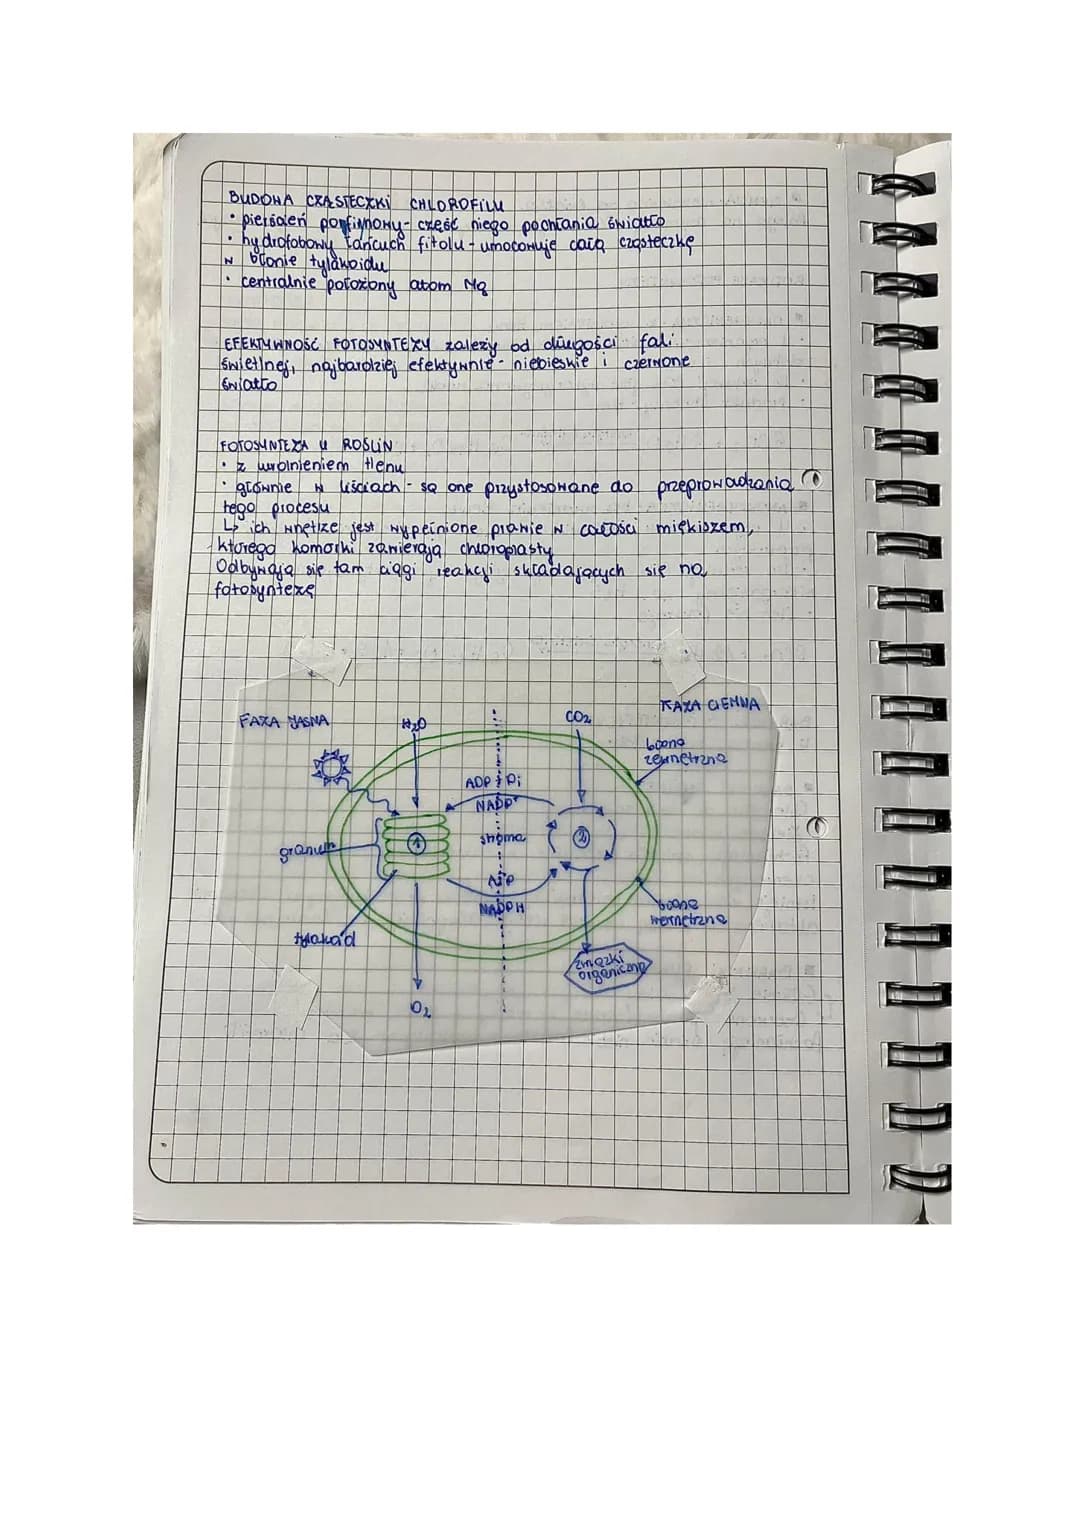 BUDOWA CZĄSTECZKI CHLOROFILU
• pierścień porfinnowy - część niego pochłania światło
• hydrofobowy łańcuch fitolu - umocowuje całą cząsteczkę
w błonie tylakoidu
• centralnie położony atom Mg
EFEKTYWNOŚĆ FOTOSYNTEZY zależy od długości fali
świetlnej, najbardziej efektywnie - niebieskie i czerwone
światło
FOTOSYNTEZA U ROŚLIN
• z uwolnieniem tlenu
• głównie w liściach - są one przystosowane do przeprowadzania
tego procesu
↳ ich wnętrze jest wypełnione prawie w całości miękiszem,
którego komórki zawierają chloroplasty
Odbywają się tam ciągi reakcji składających się na
fotosyntezę
FAZA JASNA
H₂O
CO₂
FAZA CIEMNA
błona
zewnętrzna
ADP + Pi
NADP⁺
granum
1
stroma
2
ATP
NADPH
tylakoid
błona
wewnętrzna
związki
organiczne
O₂